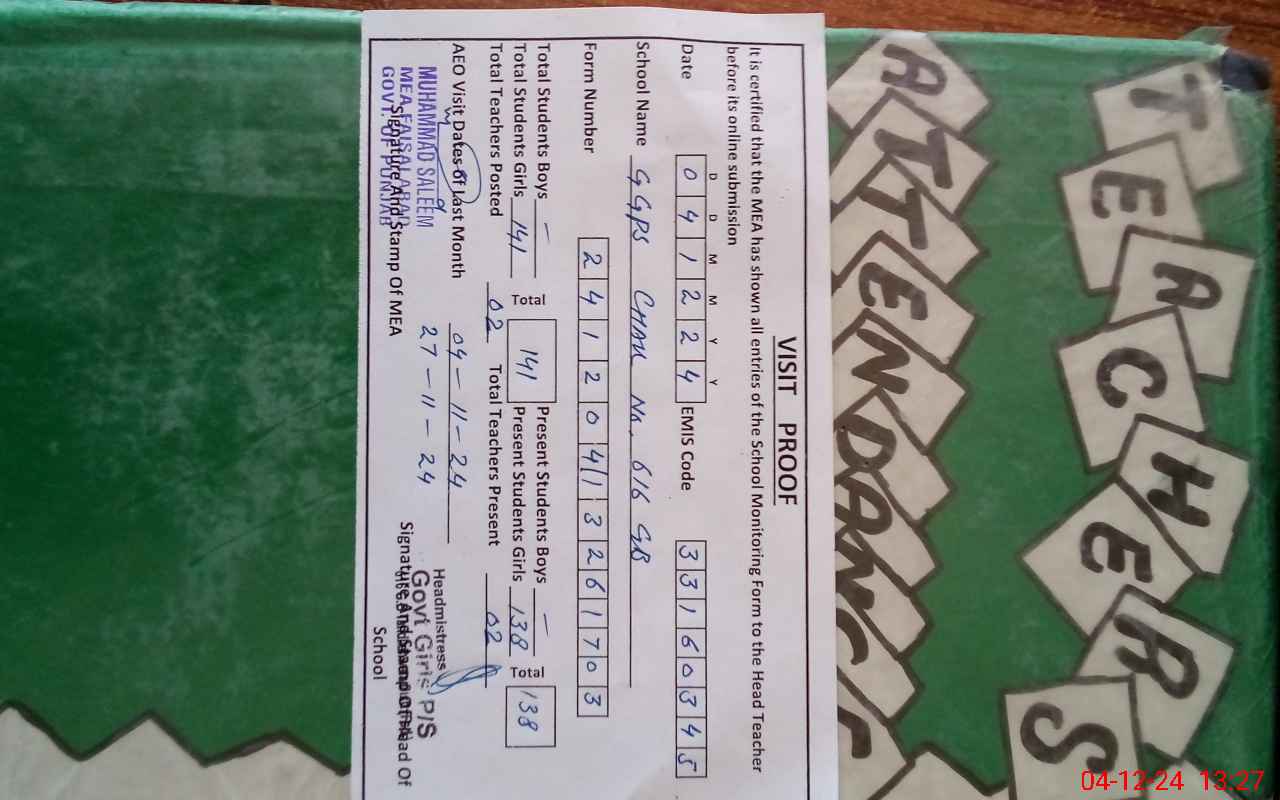 TEACHERS
ATTENDANCE
VISIT PROOF
It is certified that the MEA has shown all entries of the School Monitoring Form to the Head Teacher
before its online submission
D D M M Y Y
Date 0 4 1 2 2 4 EMIS Code 3 3 1 6 0 3 4 5
School Name GGPS CHAK No, 616 GB
Form Number 2 4 1 2 0 4 1 3 2 6 1 7 0 3
Total Students Boys — Present Students Boys —
Total Students Girls 141 Total 141 Present Students Girls 138 Total 138
Total Teachers Posted 02 Total Teachers Present 02
AEO Visit Dates of Last Month 04-11-24
27-11-24
MUHAMMAD SALEEM
MEA FAISALABAD
GOVT. OF PUNJAB
Signature And Stamp Of MEA
Headmistress
Govt Girls P/S
Signature And Stamp Of Head Of
School
04-12-24 13:27